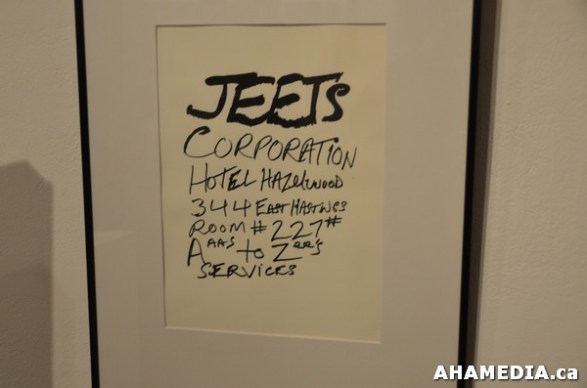 JEETS
CORPORATION
HOTEL HAZELWOOD
344 EAST HASTINGS
ROOM # 227#
Aaas to Zees
SERVICES
AHAMEDIA.ca